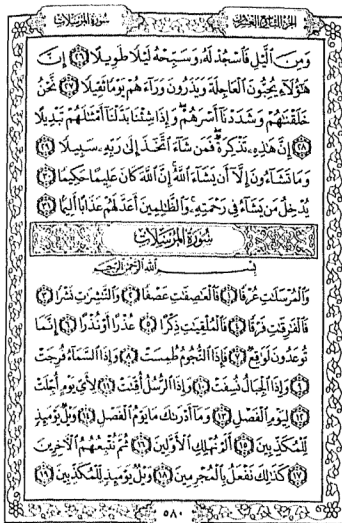 الجزء التاسع والعشرون
سورة المرسلات
وَمِنَ ٱلَّيْلِ فَٱسْجُدْ لَهُۥ وَسَبِّحْهُ لَيْلًا طَوِيلًا ﴿٢٦﴾ إِنَّ
هَٰٓؤُلَآءِ يُحِبُّونَ ٱلْعَاجِلَةَ وَيَذَرُونَ وَرَآءَهُمْ يَوْمًا ثَقِيلًا ﴿٢٧﴾ نَّحْنُ
خَلَقْنَٰهُمْ وَشَدَدْنَآ أَسْرَهُمْ ۖ وَإِذَا شِئْنَا بَدَّلْنَآ أَمْثَٰلَهُمْ تَبْدِيلًا
﴿٢٨﴾ إِنَّ هَٰذِهِۦ تَذْكِرَةٌ ۖ فَمَن شَآءَ ٱتَّخَذَ إِلَىٰ رَبِّهِۦ سَبِيلًا ﴿٢٩﴾
وَمَا تَشَآءُونَ إِلَّآ أَن يَشَآءَ ٱللَّهُ ۚ إِنَّ ٱللَّهَ كَانَ عَلِيمًا حَكِيمًا ﴿٣٠﴾
يُدْخِلُ مَن يَشَآءُ فِى رَحْمَتِهِۦ ۚ وَٱلظَّٰلِمِينَ أَعَدَّ لَهُمْ عَذَابًا أَلِيمًۢا ﴿٣١﴾
سُورَةُ المُرْسَلَات
بِسْمِ ٱللَّهِ ٱلرَّحْمَٰنِ ٱلرَّحِيمِ
وَٱلْمُرْسَلَٰتِ عُرْفًا ﴿١﴾ فَٱلْعَٰصِفَٰتِ عَصْفًا ﴿٢﴾ وَٱلنَّٰشِرَٰتِ نَشْرًا ﴿٣﴾
فَٱلْفَٰرِقَٰتِ فَرْقًا ﴿٤﴾ فَٱلْمُلْقِيَٰتِ ذِكْرًا ﴿٥﴾ عُذْرًا أَوْ نُذْرًا ﴿٦﴾ إِنَّمَا
تُوعَدُونَ لَوَٰقِعٌ ﴿٧﴾ فَإِذَا ٱلنُّجُومُ طُمِسَتْ ﴿٨﴾ وَإِذَا ٱلسَّمَآءُ فُرِجَتْ
﴿٩﴾ وَإِذَا ٱلْجِبَالُ نُسِفَتْ ﴿١٠﴾ وَإِذَا ٱلرُّسُلُ أُقِّتَتْ ﴿١١﴾ لِأَىِّ يَوْمٍ أُجِّلَتْ
﴿١٢﴾ لِيَوْمِ ٱلْفَصْلِ ﴿١٣﴾ وَمَآ أَدْرَىٰكَ مَا يَوْمُ ٱلْفَصْلِ ﴿١٤﴾ وَيْلٌ يَوْمَئِذٍ
لِّلْمُكَذِّبِينَ ﴿١٥﴾ أَلَمْ نُهْلِكِ ٱلْأَوَّلِينَ ﴿١٦﴾ ثُمَّ نُتْبِعُهُمُ ٱلْءَاخِرِينَ
﴿١٧﴾ كَذَٰلِكَ نَفْعَلُ بِٱلْمُجْرِمِينَ ﴿١٨﴾ وَيْلٌ يَوْمَئِذٍ لِّلْمُكَذِّبِينَ ﴿١٩﴾
٥٨٠